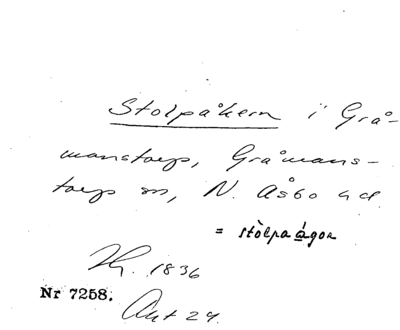 Stolpåkern i Grå-
manstorp, Gråmans-
torps sn, N. Åsbo hd.
= stòlpaågon
Nr 7258.
1836
Akt 24.